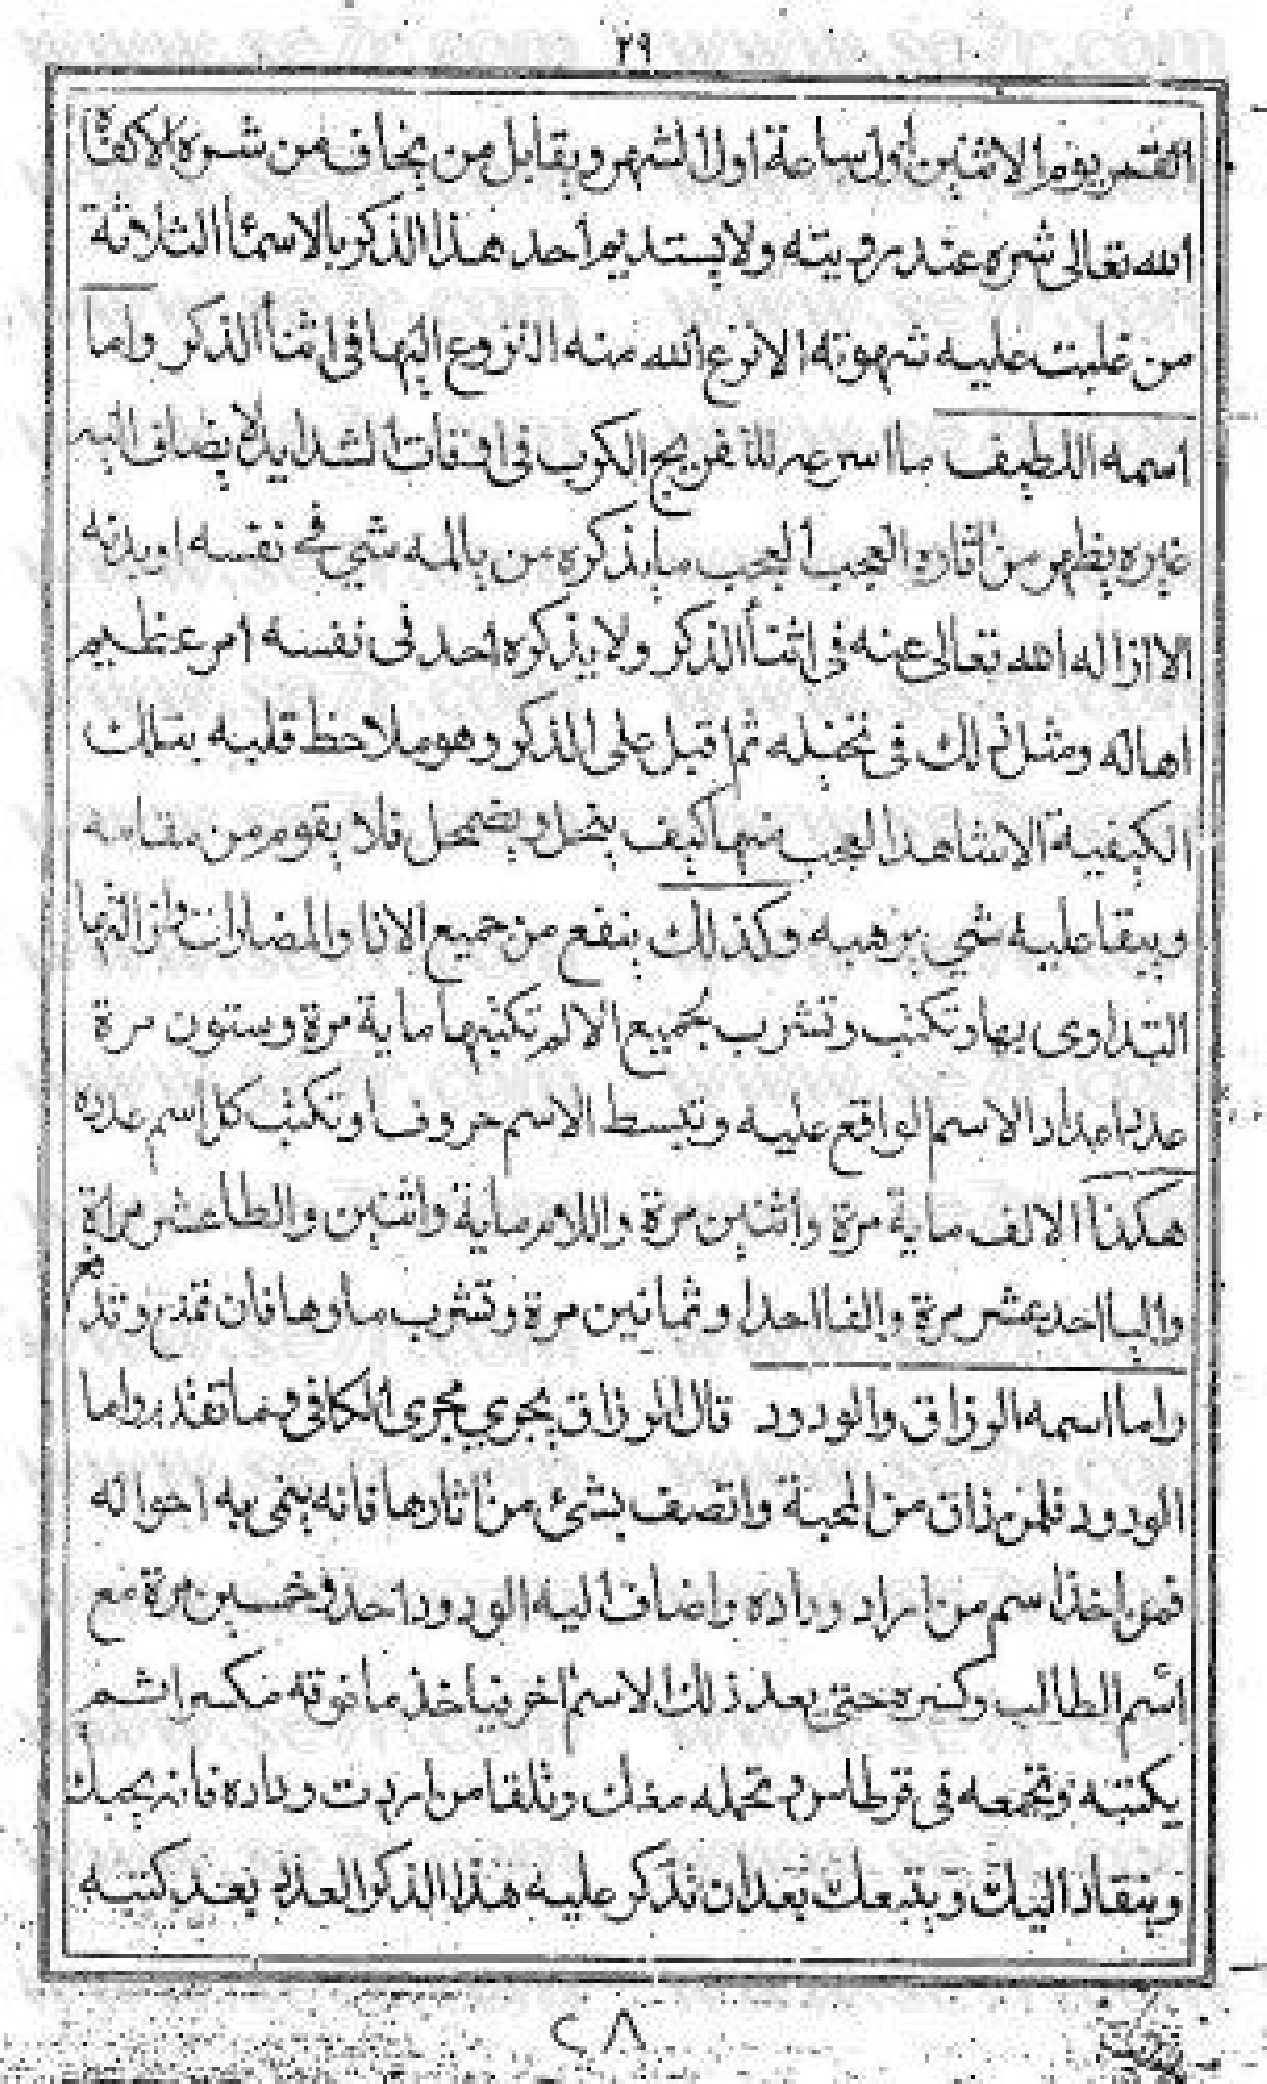 ٢٩
القمر يوم الاثنين أول ساعة اول الشهر ويقابل من يخاف من شره الا كفاه
الله تعالى شره عند رويته ولا يستديم احد هذا الذكر بالاسمأ الثلاثة
من غلبت عليه شهوته الا نزع الله منه النزوع اليها في اثنأ الذكر واما
اسمه اللطيف ما اسرعه للتفريج الكرب في اوقات الشدايد لا يضاف اليه
غيره يظهر من اثاره العجب العجب ما يذكره من يالمه شي في نفسه او بدنه
الا ازاله الله تعالى عنه في اثنأ الذكر ولا يذكره احد في نفسه امر عظيم
اهاله ومثل ذلك في تخيله ثم اقبل على الذكر وهو ملاحظ قلبه بتلك
الكيفية الا شاهد العجب منها كيف يضمحل فلا يقوم من مقامه
ويبقا عليه شي يرهبه وكذلك ينفع من جميع الاذا والمضارات
التداوى بها وتكتب وتشرب لجميع الالم تكتبها ماية مرة وستون مرة
اعداد الاسم الواقع عليه وتبسط الاسم حروفا وتكتب كل اسم عدده
هكذا الالف ماية مرة واثنين مرة واللام ماية واثنين والطا عشر مراة
واليا احد عشر مرة والفا احدا وثمانين مرة وتشرب ماوها فان
واما اسمه الرزاق والودود قال الرزاق يجري مجرى الكافي فيما تقدم واما
الودود فلمن ذاق من المحبة واتصف بشئ من اثارها فانه ينمى به احواله
فمن اخذ اسم من اراد وداده واضاف اليه الودود احد وخمسين مرة مع
اسم الطالب وكسره حتى يعد ذلك الاسم اخر فياخذ ما فوقه مكسرا ثم
يكتبه وتجمعه في قرطاس وتحمله معك وتلقا من اردت وداده فانه يحبك
وينقاد اليك ويتبعك بعد ان تذكر عليه هذا الذكر العدد بعد كتبه
٢٨